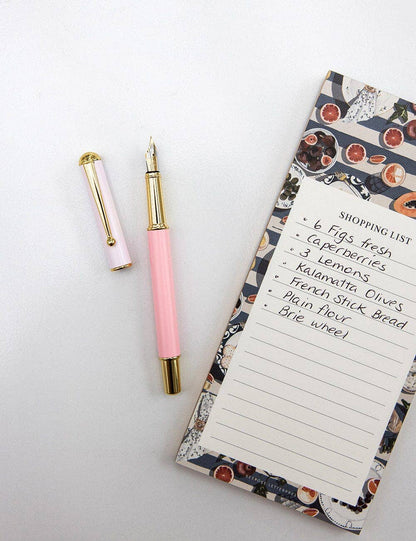 SHOPPING LIST
6 Figs fresh
Caperberries
3 Lemons
Kalamatta Olives
French Stick Bread
Plain flour
Brie wheel